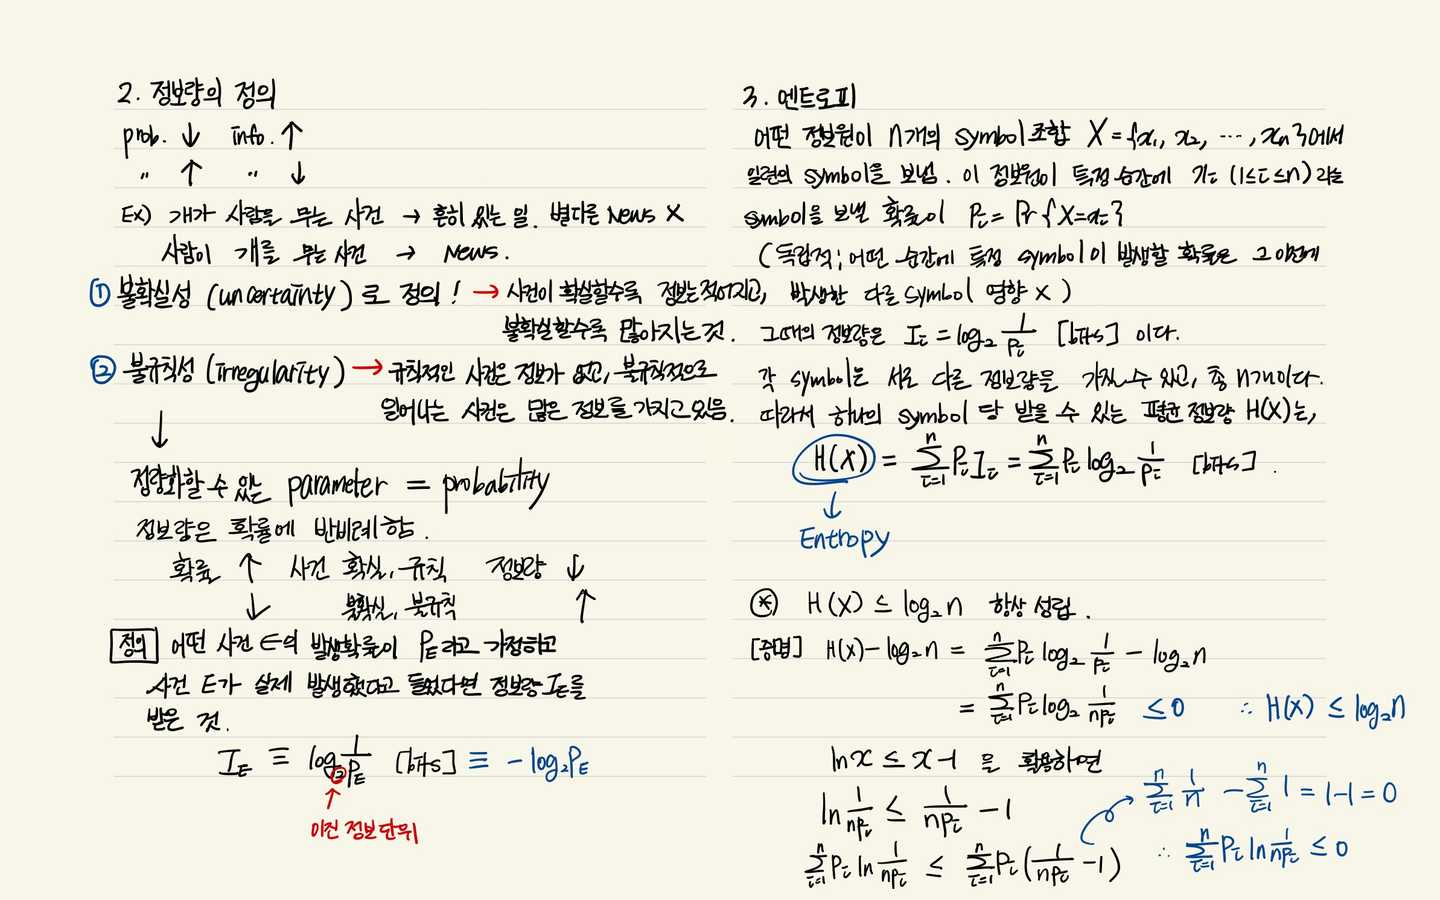 2. 정보량의 정의
prob. ↓ info. ↑
〃 ↑ 〃 ↓
Ex) 개가 사람을 무는 사건 → 흔히 있는 일. 별다른 News X
사람이 개를 무는 사건 → News.
① 불확실성 (uncertainty)로 정의! → 사건이 확실할수록 정보는 적어지고,
불확실할수록 많아지는 것.
② 불규칙성 (irregularity) → 규칙적인 사건은 정보가 없고, 불규칙적으로
일어나는 사건은 많은 정보를 가지고 있음.
↓
정량화할 수 있는 parameter = probability
정보량은 확률에 반비례함.
확률 ↑ 사건 확실, 규칙 정보량 ↓
↓ 불확실, 불규칙 ↑
정의 어떤 사건 E의 발생확률이 P_E라고 가정하고
사건 E가 실제 발생했다고 들었다면 정보량 I_E를
받은 것.
I_E ≡ log₂ 1/P_E [bits] ≡ -log₂P_E
↑
이진 정보단위
3. 엔트로피
어떤 정보원이 n개의 symbol 조합 X = {x₁, x₂, ..., xₙ}에서
일련의 symbol을 보냄. 이 정보원이 특정 순간에 xᵢ (1≤i≤n) 라는
symbol을 보낼 확률이 Pᵢ = Pr{X=xᵢ}
(독립적; 어떤 순간에 특정 symbol이 발생할 확률은 그 이전에
발생한 다른 symbol 영향 X)
그때의 정보량은 Iᵢ = log₂ 1/Pᵢ [bits] 이다.
각 symbol은 서로 다른 정보량을 가질 수 있고, 총 n개이다.
따라서 하나의 symbol 당 받을 수 있는 평균 정보량 H(X)는,
H(X) = Σ_{i=1}^{n} PᵢIᵢ = Σ_{i=1}^{n} Pᵢ log₂ 1/Pᵢ [bits].
↓
Entropy
⊛ H(X) ≤ log₂n 항상 성립.
[증명] H(X) - log₂n = Σ_{i=1}^{n} Pᵢ log₂ 1/Pᵢ - log₂n
= Σ_{i=1}^{n} Pᵢ log₂ 1/nPᵢ ≤ 0 ∴ H(X) ≤ log₂n
lnx ≤ x-1 을 활용하면
ln 1/nPᵢ ≤ 1/nPᵢ - 1
Σ_{i=1}^{n} Pᵢ ln 1/nPᵢ ≤ Σ_{i=1}^{n} Pᵢ(1/nPᵢ - 1)
Σ_{i=1}^{n} 1/n - Σ_{i=1}^{n} 1 = 1-1 = 0
∴ Σ_{i=1}^{n} Pᵢ ln 1/nPᵢ ≤ 0